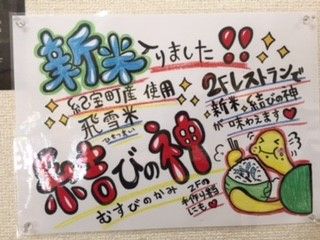 新米入りました!!
紀宝町産 使用
飛雪米
ひせつまい
結びの神
むすびのかみ
2Fレストランで
新米・結びの神
が味わえます♥
2Fの
手作り弁当
にも♥